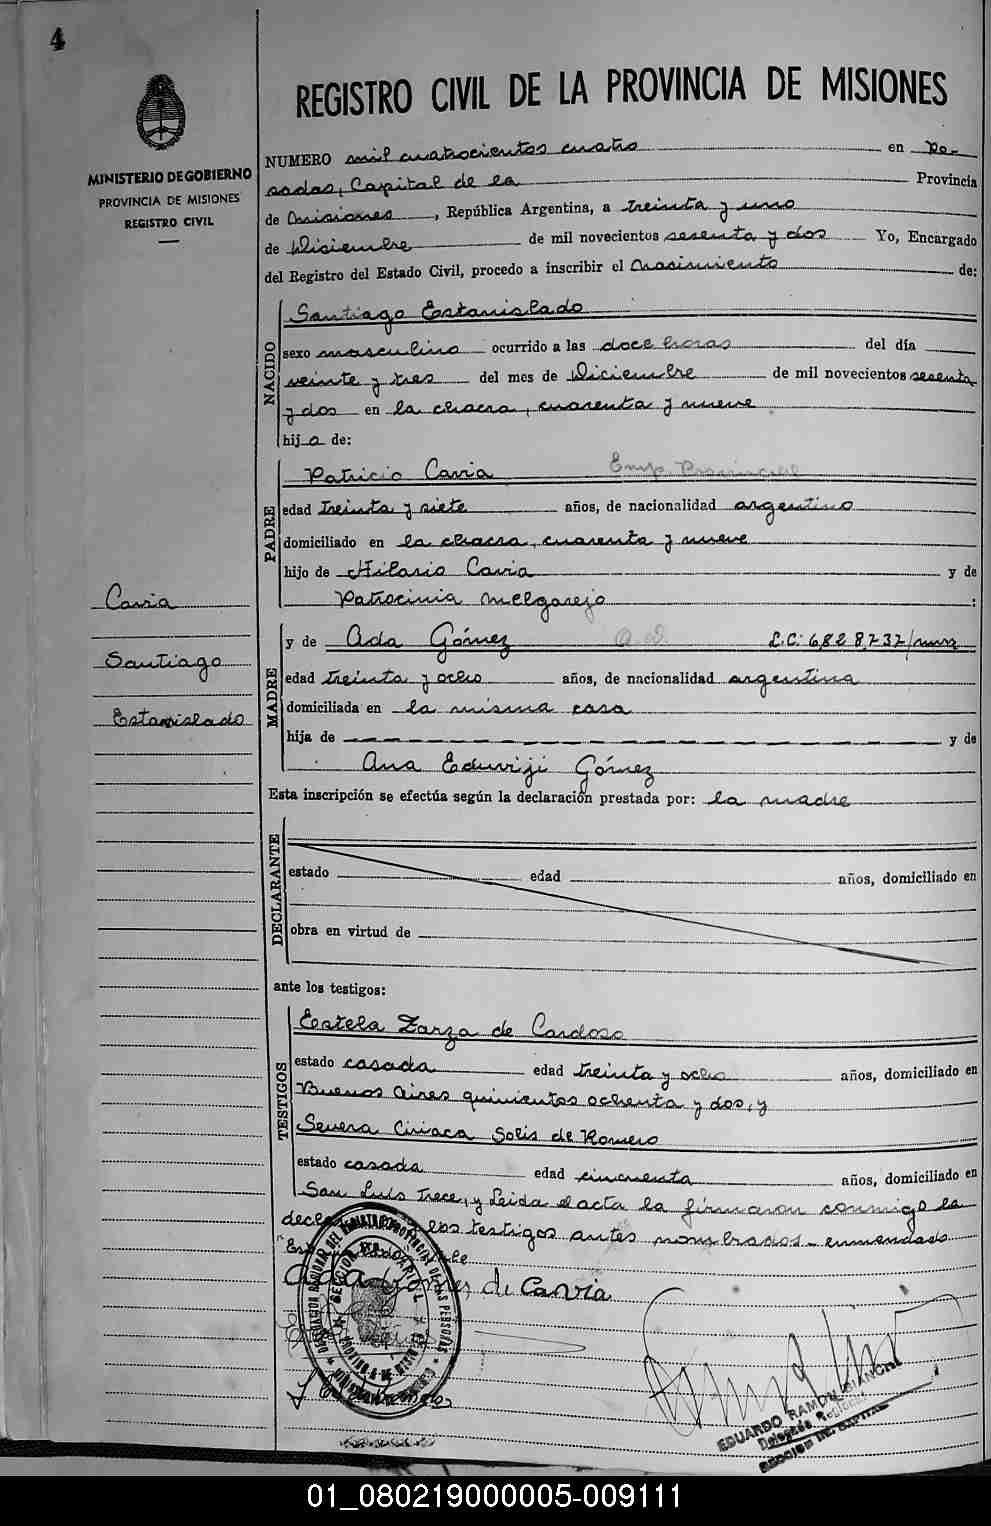 4
REGISTRO CIVIL DE LA PROVINCIA DE MISIONES
MINISTERIO DE GOBIERNO
PROVINCIA DE MISIONES
REGISTRO CIVIL
NUMERO mil cuatrocientos cuatro en Po-
sadas, Capital de la Provincia
de Misiones, República Argentina, a treinta y uno
de Diciembre de mil novecientos sesenta y dos Yo, Encargado
del Registro del Estado Civil, procedo a inscribir el Nacimiento de:
NACIDO
Santiago Estanislado
sexo masculino ocurrido a las doce horas del día
veinte y tres del mes de Diciembre de mil novecientos sesenta
y dos en la chacra, cuarenta y nueve
hijo de:
PADRE
Patricio Cavia Emp. Provincial
edad treinta y siete años, de nacionalidad argentino
domiciliado en la chacra, cuarenta y nueve
hijo de Hilario Cavia y de
Patrocinia Melgarejo :
Cavia
Santiago
Estanislado
MADRE
y de Ada Gómez L.C: 6.828.737/
edad treinta y ocho años, de nacionalidad argentina
domiciliada en la misma casa
hija de y de
Ana Eduviji Gómez
Esta inscripción se efectúa según la declaración prestada por: la madre
DECLARANTE
estado edad años, domiciliado en
obra en virtud de
ante los testigos:
TESTIGOS
Estela Zarza de Cardoso
estado casada edad treinta y ocho años, domiciliado en
Buenos Aires quinientos ochenta y dos, y
Severa Ciriaca Solis de Romero
estado casada edad cincuenta años, domiciliado en
San Luis trece, y Leida el acta la firmaron conmigo la
los testigos antes nombrados - enmendado
Ada de Cavia
EDUARDO RAMON BIANCHI
Delegado
SECCION DE CAPITAL
01_080219000005-009111